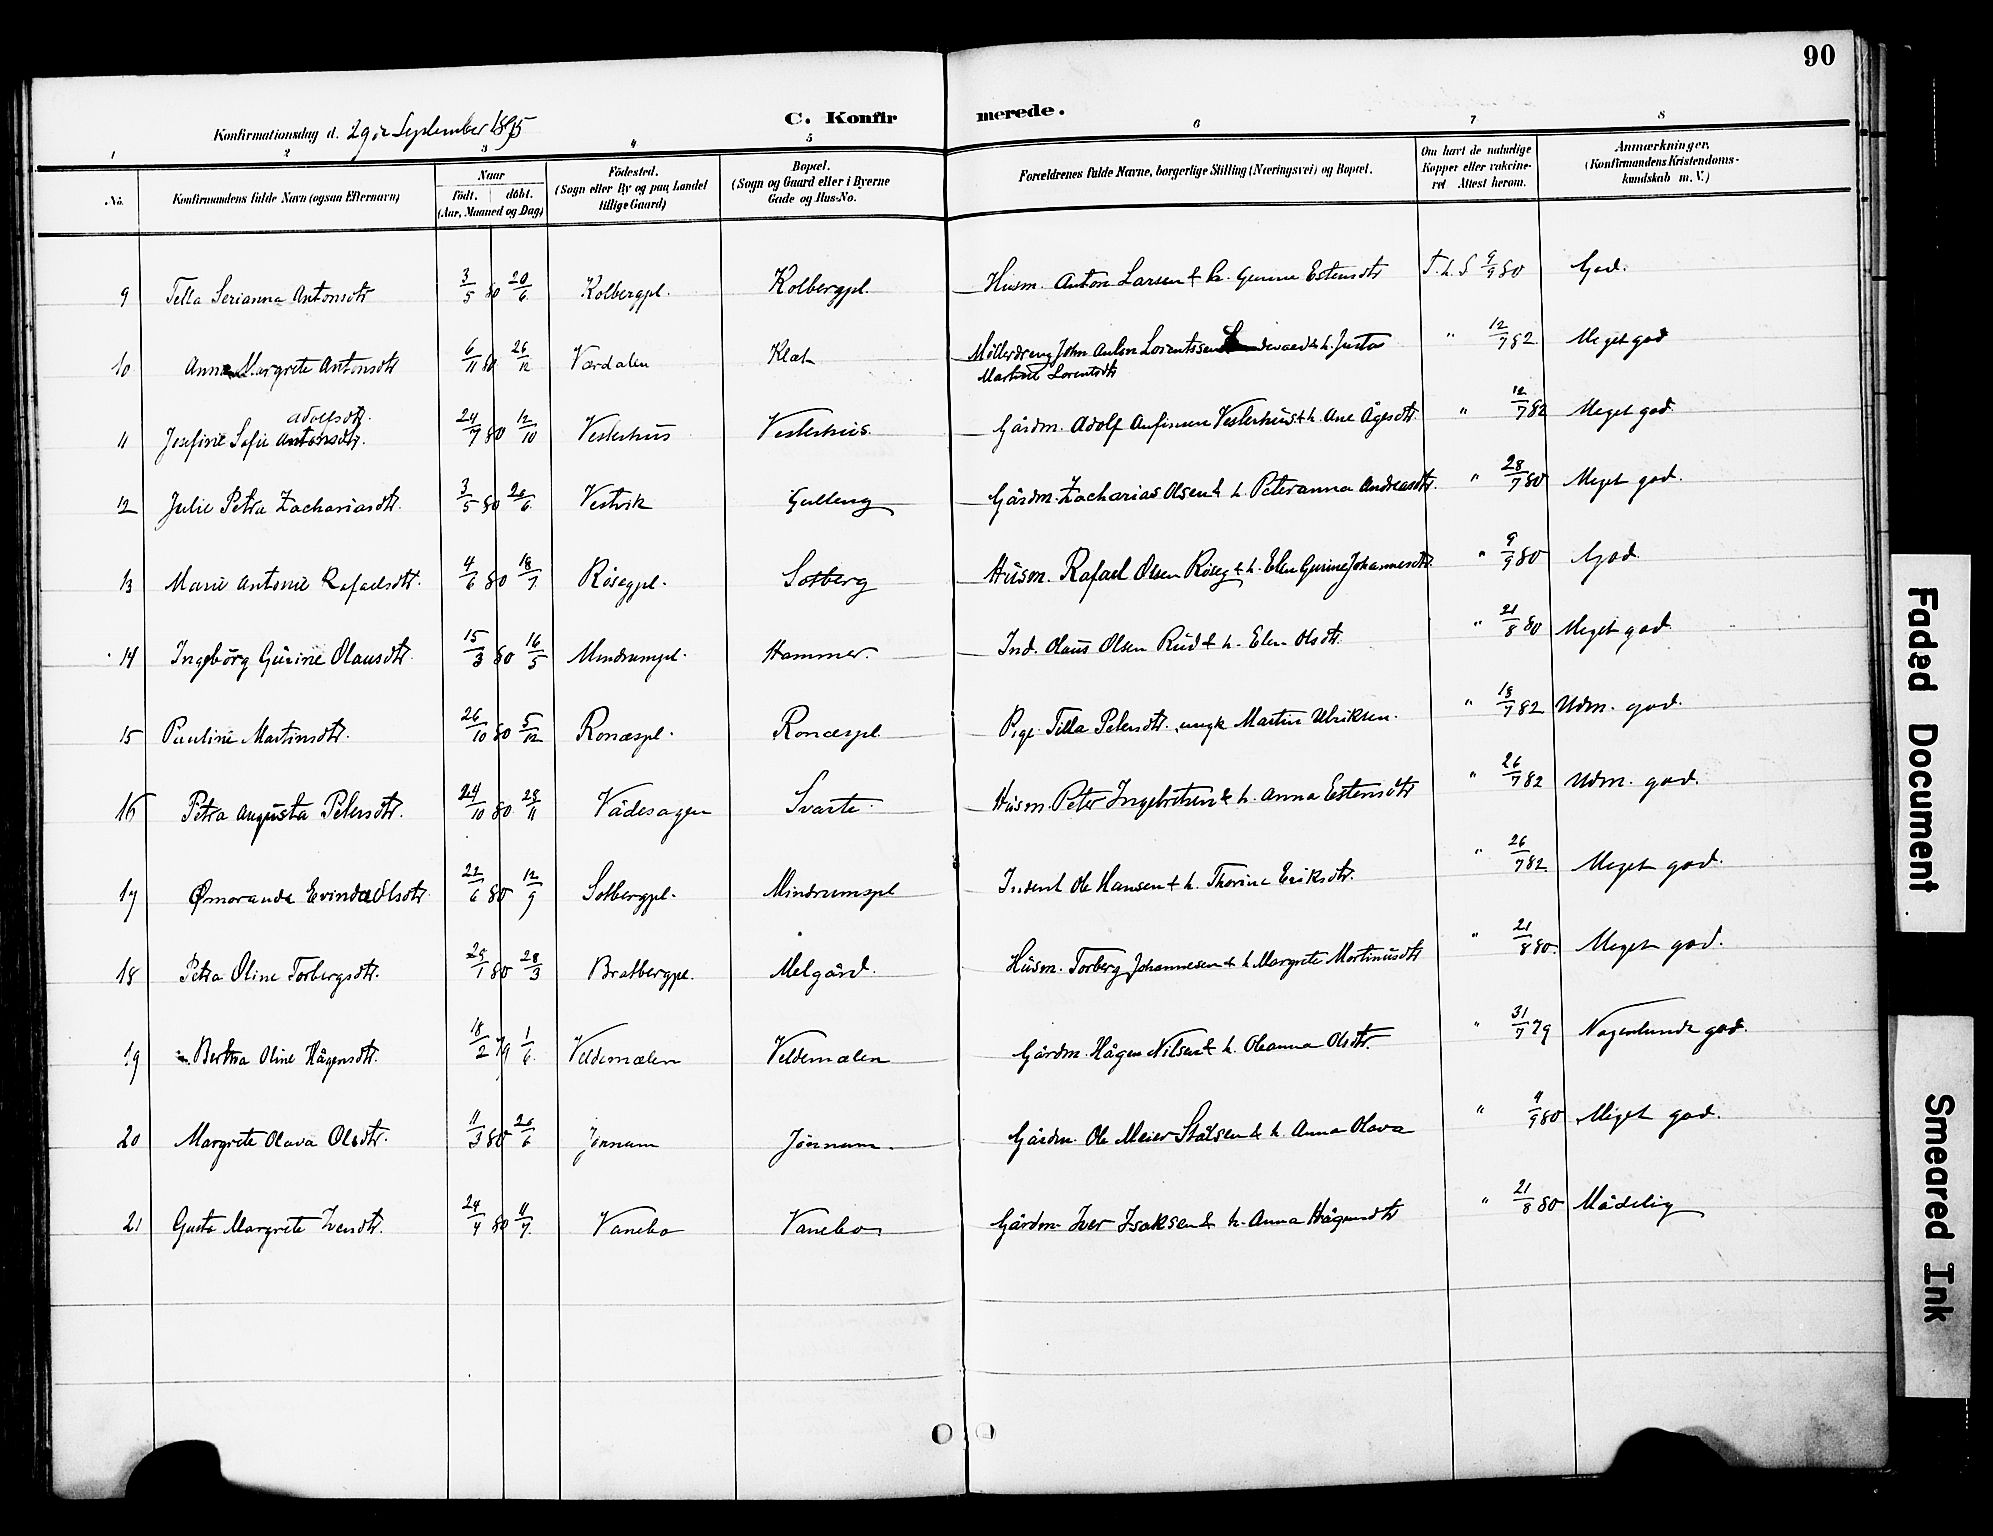 90
Konfirmationsdag d. 29de September 1895
C. Konfirmerede.
1 2 3 4 5 6 7 8
No. Konfirmandens fulde Navn (ogsaa Efternavn) Naar födt. döbt. (Aar, Maaned og Dag) Födested. (Sogn eller By og paa Landet tillige Gaard) Bopæl. (Sogn og Gaard eller i Byerne Gade og Hus-No. Forældrenes fulde Navne, borgerlige Stilling (Næringsvei) og Bopæl. Om havt de naturlige Kopper eller vaccineret Attest herom. Anmærkninger. (Konfirmandens Kristendomskundskab m. V.)
9 Tella Serianna Antonsdtr 3/5 80 20/6 Kolbergpl. Kolbergpl. Husm. Anton Larsen & h. Gunne Estensdtr T.L.S 9/9 80 God.
10 Anna Margrete Antonsdtr 6/11 80 26/12 Værdalen Klæt Møllerdreng John Anton Lorentssen & h. Justa Martine Lorentsdtr " 12/7 82 Meget god
11 Josefine Sofie Antonsdtr. Adolfsdtr. 24/7 80 12/10 Vesterhus Vesterhus. Gårdm. Adolf Anfinsen Vesterhus & h. Ane Ågesdtr " 12/7 82 Meget god
12 Julie Petra Zachariasdtr. 3/5 80 20/6 Vestvik Gulleng Gårdm. Zacharias Olsen & h. Peteranna Andreasdtr. " 28/7 80 Meget god.
13 Marie Antonie Rafaelsdtr. 4/6 80 18/7 Røsegpl. Solberg Husm. Rafael Olsen Røseg & h. Elen Gurine Johannesdtr. " 9/9 80 God
14 Ingebörg Gurine Olausdtr. 15/3 80 16/5 Mindrumpl. Hammer. Ind. Olaus Olsen Rud & h. Elen Olsdtr. " 21/8 80 Meget god.
15 Pauline Martinsdtr. 26/10 80 5/12 Ronæspl. Ronæspl Pige Tilla Petersdtr. ungk Martin Ulriksen. " 18/7 82 Udm. god.
16 Petra Augusta Petersdtr. 24/10 80 28/11 Vådesagen Svarte. Husm. Peter Ingebritsen & h. Anna Estensdtr " 26/7 82 Udm. god.
17 Ømoranda Evinda Olsdtr. 22/6 80 12/9 Solbergpl. Mindrumspl Inderst Ole Hansen & h. Thorine Eriksdtr. " 26/7 82 Meget god.
18 Petra Oline Torbergsdtr. 25/1 80 28/3 Bratbergpl. Melgård. Husm. Torberg Johannesen & h Margrete Martinusdtr " 21/8 80. Meget god.
19 Bertha Oline Hågensdtr. 18/2 79 1/6. Veldemælen Veldemælen Gårdm. Hågen Nilsen & h. Oleanna Olsdtr. " 31/7 79 Nogenlunde god.
20 Margrete Olava Olsdtr. 11/3 80 20/6 Jönnum Jönnum. Gårdm. Ole Meier Stålsen & h. Anna Olava " 9/9 80 Meget god.
21 Gusta Margrete Iversdtr. 24/4 80 4/7. Vanebo Vanebo Gårdm. Iver Isaksen & h. Anna Hågensdtr " 21/8 80 Mådelig
Faded Document
Smeared Ink